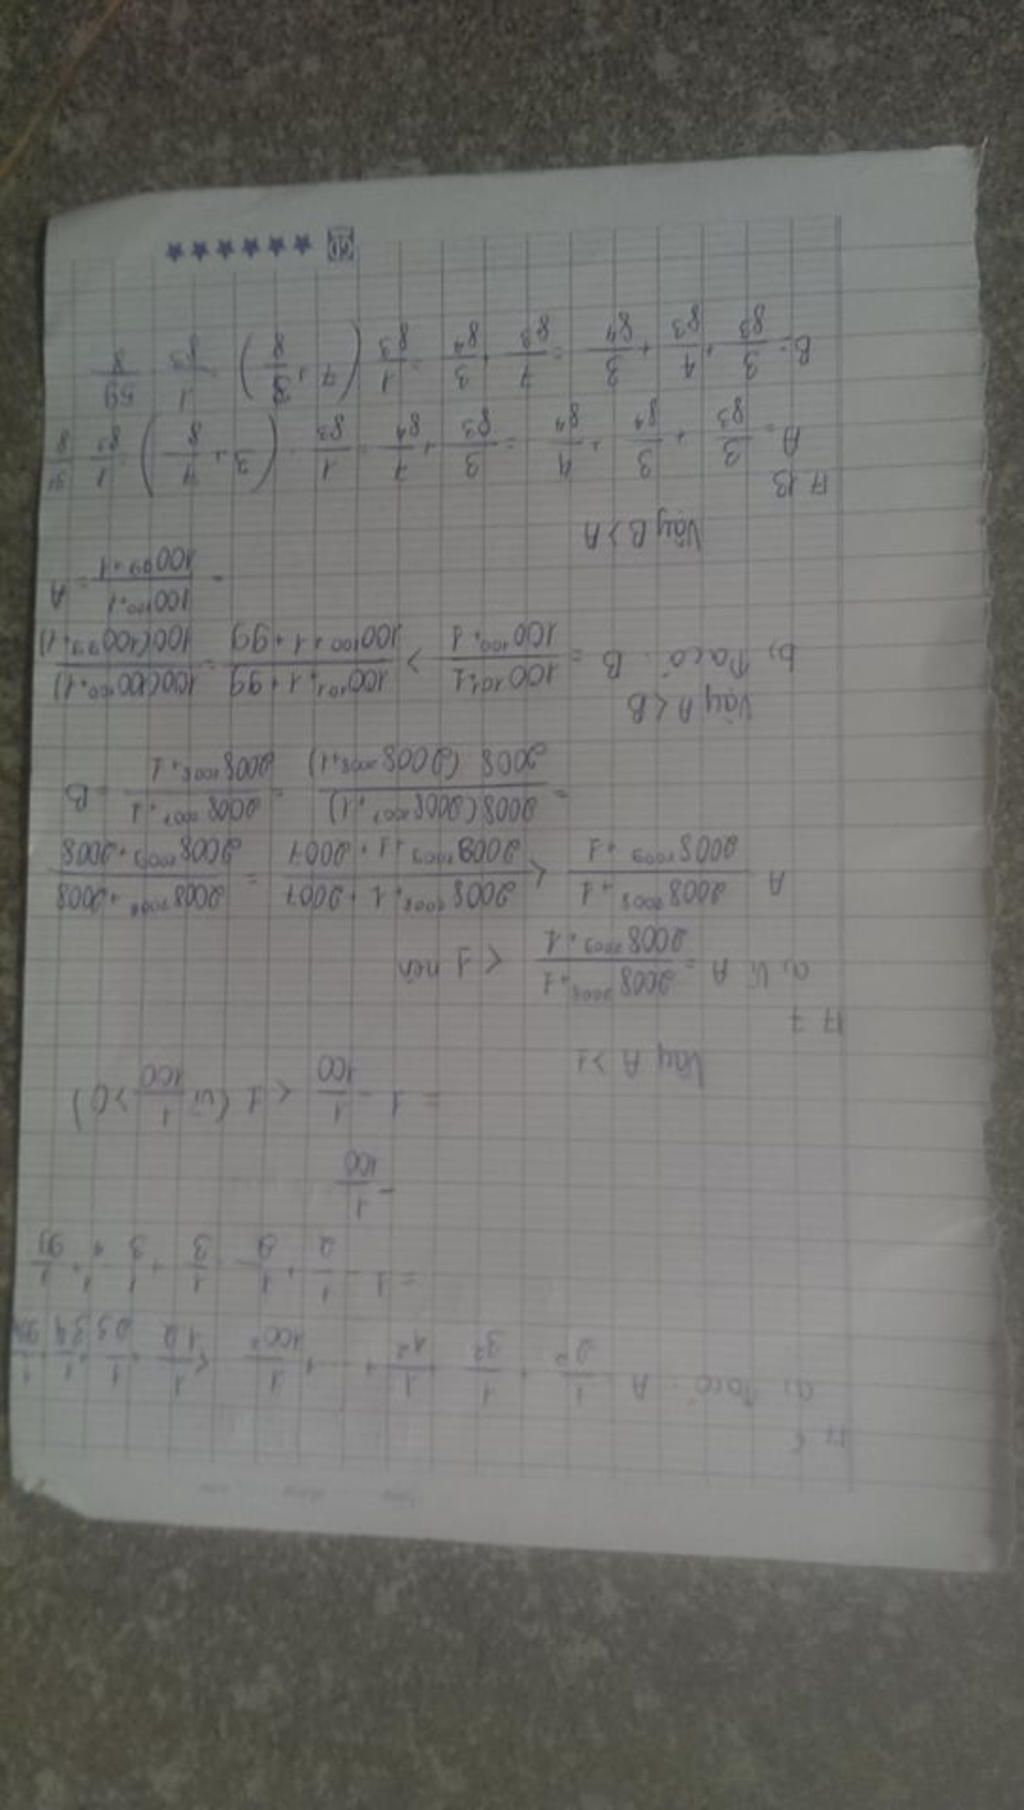 a, Ta có: A = 1/2² + 1/3² + 1/4² + ... + 1/100² < 1/1.2 + 1/2.3 + 1/3.4
= 1 - 1/2 + 1/2 - 1/3 + 1/3
- 1/100
= 1 - 1/100 < 1 (vì 1/100 > 0)
Vậy A > 1
17.7
a, Vì A = (2008^2008 + 1)/(2008^2009 + 1) < 1 nên
A = (2008^2008 + 1)/(2008^2009 + 1) < (2008^2008 + 1 + 2007)/(2009^2009 + 1 + 2007) = (2008^2008 + 2008)/(2008^2009 + 2008)
= 2008(2008^2007 + 1)/2008(2008^2008 + 1) = (2008^2007 + 1)/(2008^2008 + 1) = B
Vậy A < B
b, Ta có: B = (100^101 + 1)/(100^100 + 1) > (100^101 + 1 + 99)/(100^100 + 1 + 99) = 100(100^100 + 1)/100(100^99 + 1)
= (100^100 + 1)/(100^99 + 1) = A
Vậy B > A
17.13
A = 3/8³ + 3/8⁴ + 4/8⁴ = 3/8³ + 7/8⁴ = 1/8³ . (3 + 7/8) = 1/8³ . 31/8
B = 3/8³ + 4/8³ + 3/8⁴ = 7/8³ + 3/8⁴ = 1/8³ (7 + 3/8) = 1/8³ . 59/8